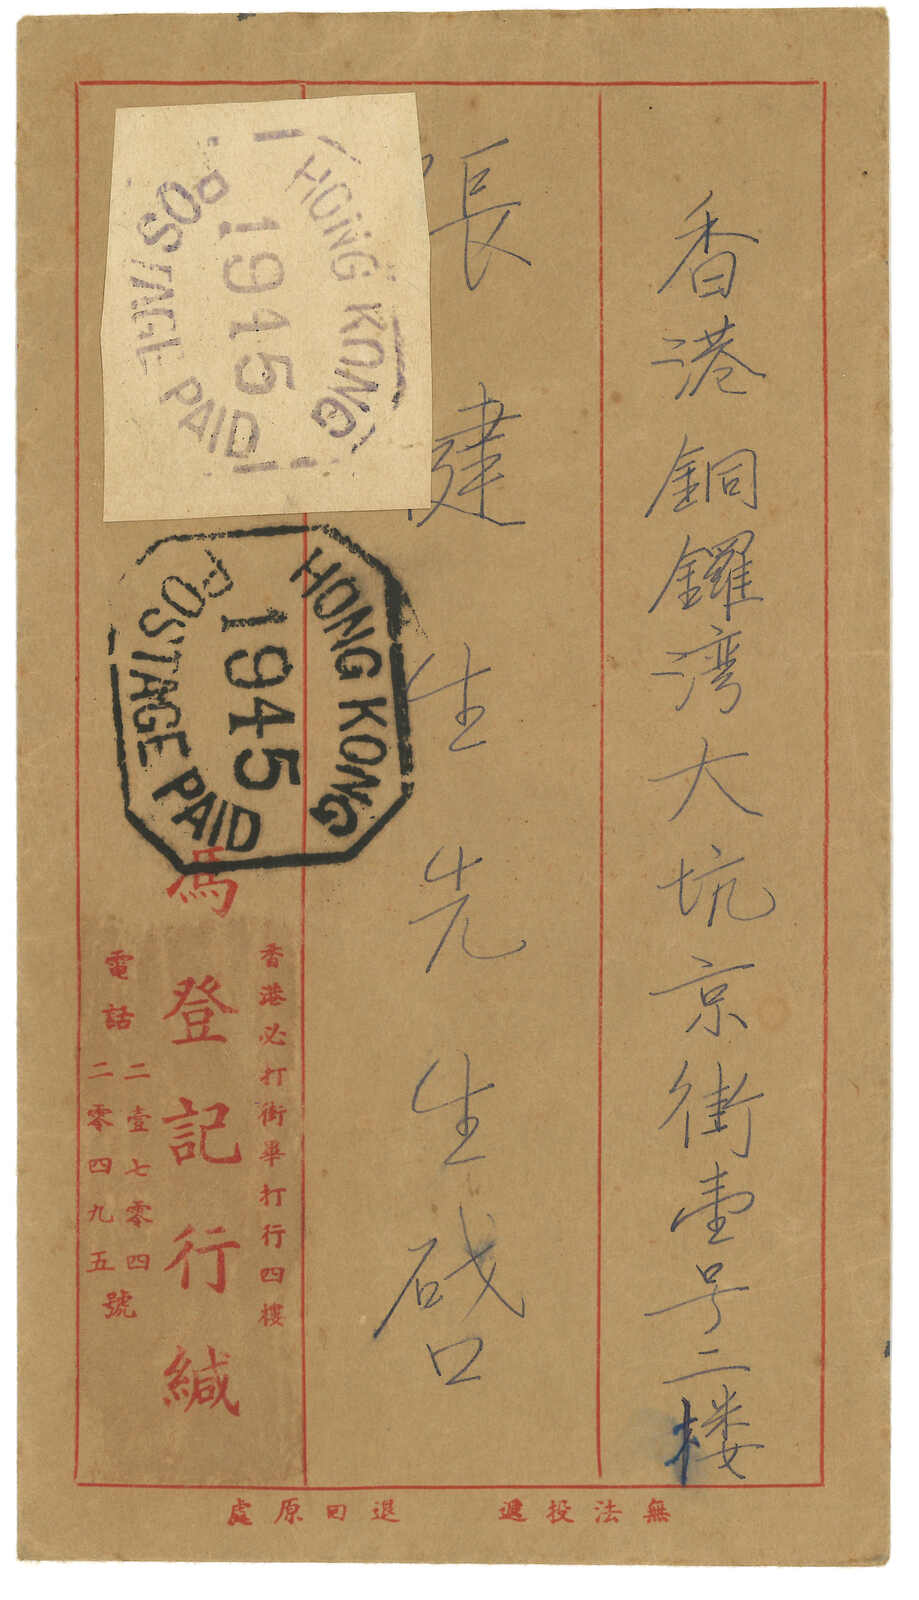 香港銅鑼湾大坑京街壹号二楼
張建生先生
HONG KONG
1945
POSTAGE PAID
HONG KONG
1945
POSTAGE PAID
香港必打街畢打行四樓
馮登記行緘
電話 二壹七零四
二零四九五 號
無法投遞 退回原處